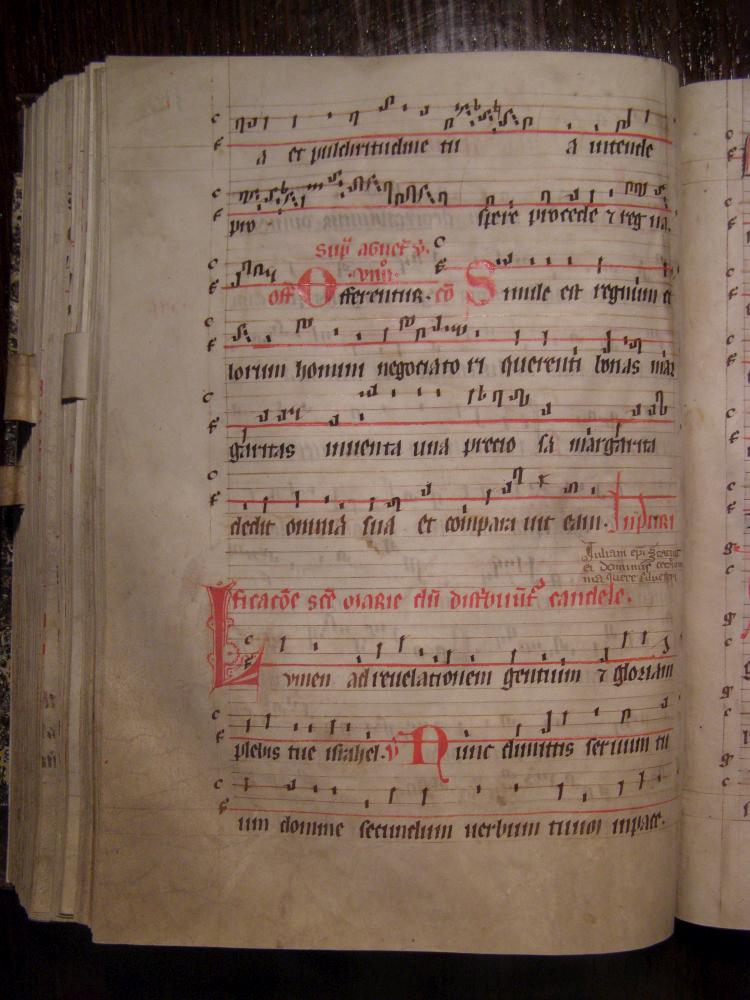 a et pulchritudine tu a intende
pro spere procede ⁊ regna.
sup̄ agnet᷒ v̄.
off Offerentur. cō Simile est regnum ce
lorum homini negociatori querenti bonas mar
garitas inventa una precio sa margarita
dedit omnia sua et comparavit eam. Inpuri
Juliani epi
ei dominus
ma quere
ficacōe scē Marie dū distribuūt᷒ candele.
Lumen ad revelationem gentium ⁊ gloriam
plebis tue israhel. v̄ Nunc dimittis servum tu
um domine secundum verbum tuum in pace.